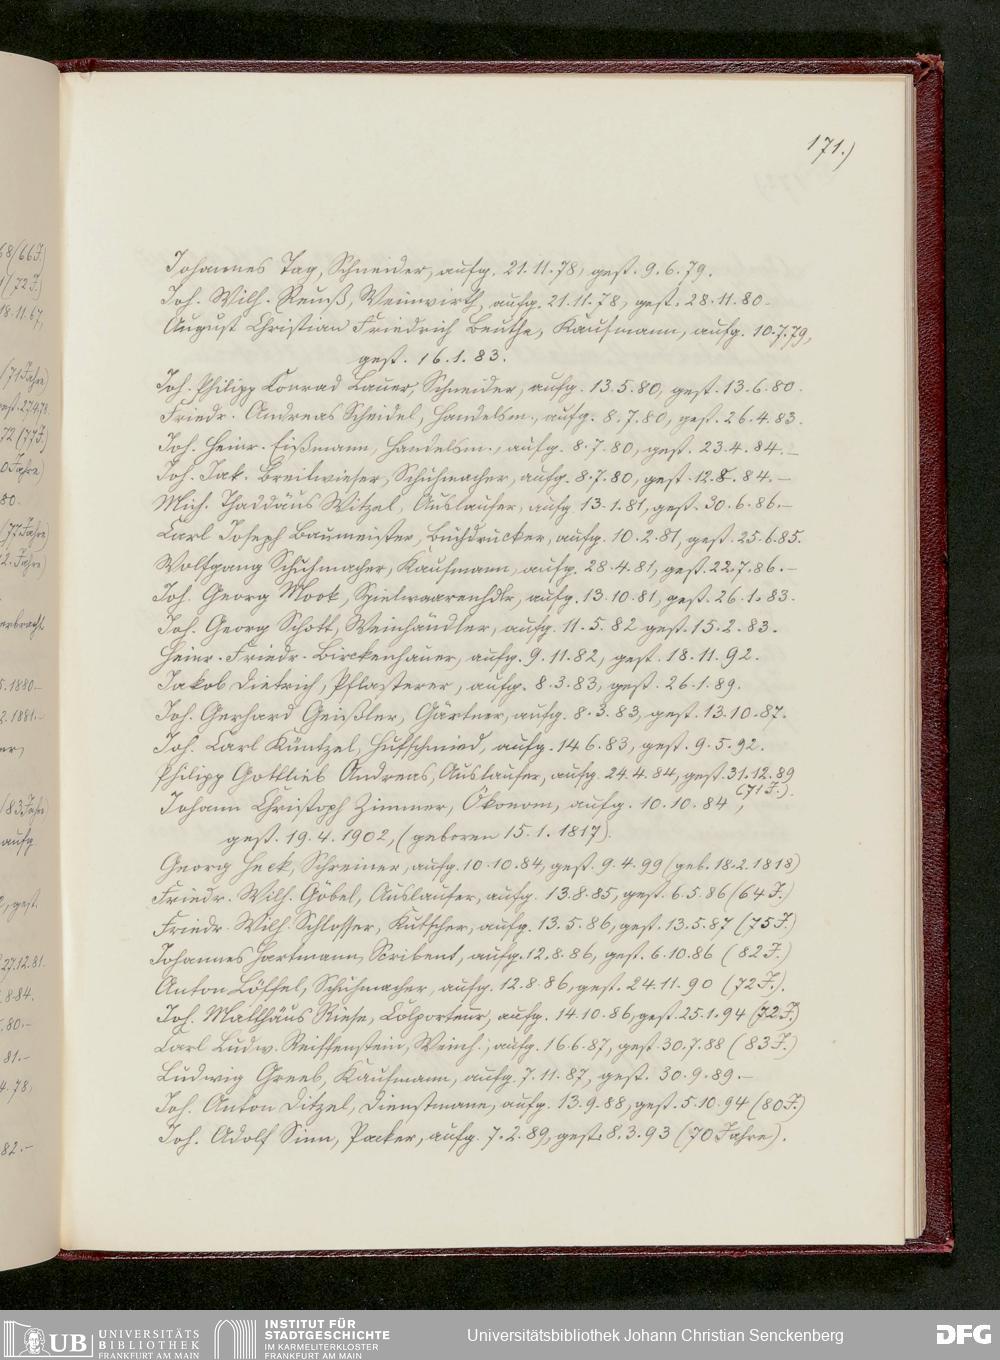 171.)
Johannes Tag, Schneider, aufg. 21.11.78, gest. 9.6.79.
Joh. Wilh. Reuß, Weinwirth, aufg. 21.11.78, gest. 28.11.80.
August Christian Friedrich Beuthe, Kaufmann, aufg. 10.7.79,
gest. 16.1.83.
Joh. Philipp Conrad Lauer, Schneider, aufg. 13.5.80, gest. 13.6.80.
Friedr. Andreas Scheidel, Handelsm., aufg. 8.7.80, gest. 26.4.83.
Joh. Heinr. Eißmann, Handelsm., aufg. 8.7.80, gest. 23.4.84.-
Joh. Jak. Breitwieser, Schuhmacher, aufg. 8.7.80, gest. 12.8.84.-
Mich. Thaddäus Witzel, Auslaufer, aufg. 13.1.81, gest. 30.6.86.-
Carl Joseph Baumeister, Buchdrucker, aufg. 10.2.81, gest. 25.6.85.
Wolfgang Schuhmacher, Kaufmann, aufg. 28.4.81, gest. 22.7.86.-
Joh. Georg Mook, Spielwaarenhdlr, aufg. 13.10.81, gest. 26.1.83.
Joh. Georg Schott, Weinhändler, aufg. 11.5.82 gest. 15.2.83.
Heinr. Friedr. Birckenhauer, aufg. 9.11.82, gest. 18.11.92.
Jakob Dietrich, Pflasterer, aufg. 8.3.83, gest. 26.1.89.
Joh. Gerhard Geißler, Gärtner, aufg. 8.3.83, gest. 13.10.87.
Joh. Carl Küntzel, Hufschmied, aufg. 14.6.83, gest. 9.5.92.
Philipp Gottlieb Andreas, Auslaufer, aufg. 24.4.84, gest. 31.12.89
(71 J.).
Johann Christoph Zimmer, Ökonom, aufg. 10.10.84,
gest. 19.4.1902, (geboren 15.1.1817).
Georg Heck, Schreiner, aufg. 10.10.84, gest. 9.4.99 (geb. 18.2.1818)
Friedr. Wilh. Göbel, Auslaufer, aufg. 13.8.85, gest. 6.5.86 (64 J.)
Friedr. Wilh. Schlosser, Kutscher, aufg. 13.5.86, gest. 13.5.87 (75 J.)
Johannes Hartmann, Scribent, aufg. 12.8.86, gest. 6.10.86 (82 J.)
Anton Löffel, Schuhmacher, aufg. 12.8.86, gest. 24.11.90 (72 J.).
Joh. Matthäus Riese, Colporteur, aufg. 14.10.86, gest. 25.1.94 (72 J.)
Carl Ludw. Reiffenstein, Weinh., aufg. 16.6.87, gest. 30.7.88 (83 J.)
Ludwig Greeb, Kaufmann, aufg. 7.11.87, gest. 30.9.89.-
Joh. Anton Ditzel, Dienstmann, aufg. 13.9.88, gest. 5.10.94 (80 J.)
Joh. Adolf Sinn, Packer, aufg. 7.2.89, gest. 8.3.93 (70 Jahre).
UB UNIVERSITÄTS
BIBLIOTHEK
FRANKFURT AM MAIN
INSTITUT FÜR
STADTGESCHICHTE
IM KARMELITERKLOSTER
FRANKFURT AM MAIN
Universitätsbibliothek Johann Christian Senckenberg
DFG